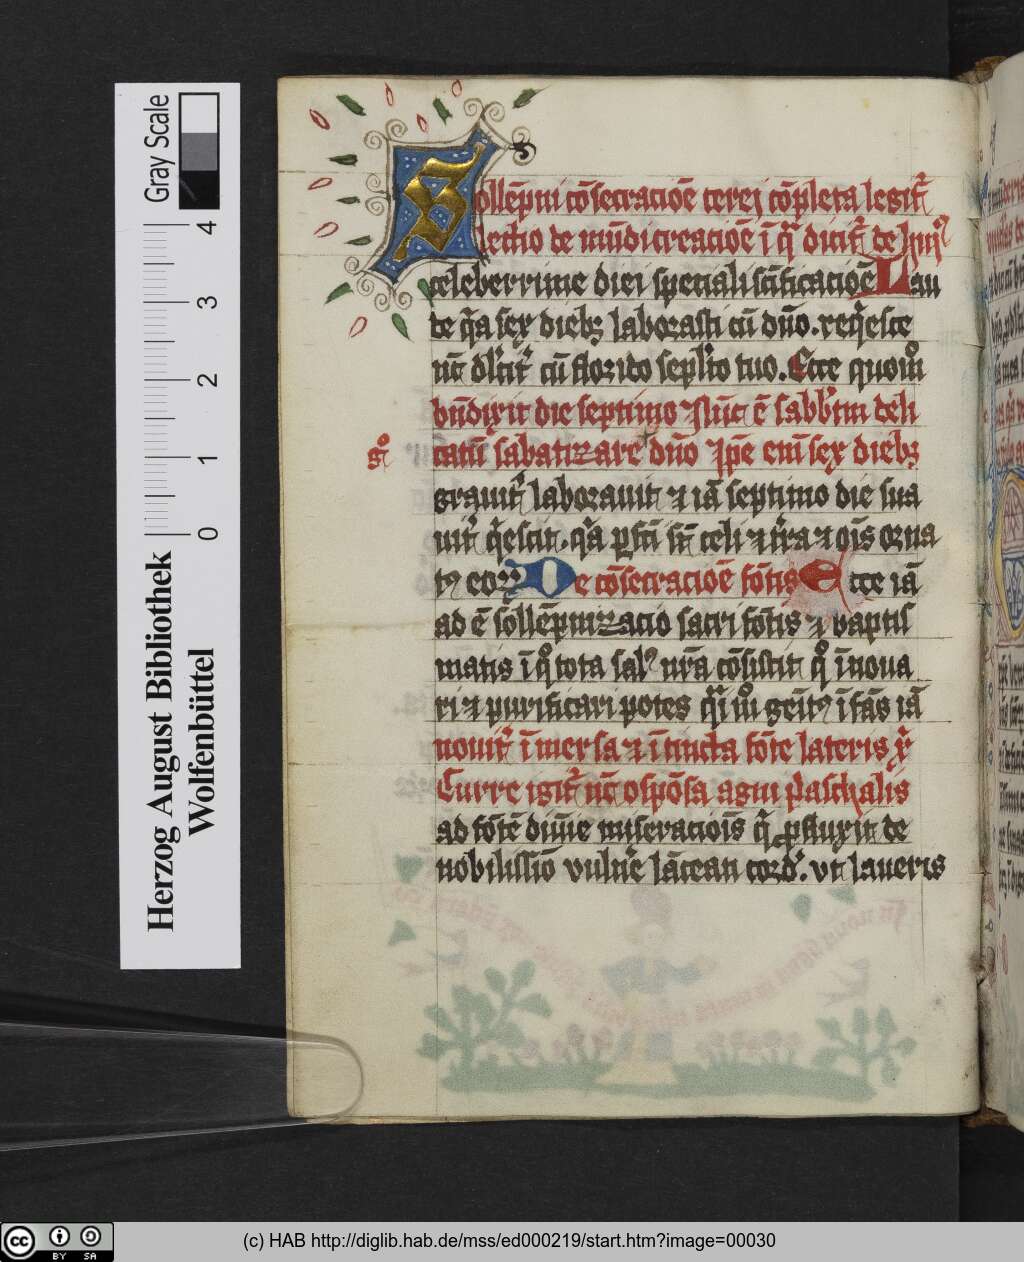 Gray Scale
4
3
2
1
0
Herzog August Bibliothek
Wolfenbüttel
Sollēpni cōsecracioē cerei cōpleta legit᷑
lectio de mūdi creacioē ī q̄ dicit᷑ de hui⁹
celeberrime diei speciali scīficacioē Lau
te q̄a sex dieb⁊ laborasti cū dn̄o. reqͥesce
cū florido seplͨro tuo. Ecce quoͦ
bn̄dixit die septimo Nūc ē sabb̄tm deli
gͦ
catū sabatizare dn̄o Ip̄e eni᷑ sex dieb⁊
grauit᷑ laborauit ⁊ iā septimo die sua
uit᷑ qͥescit. qͥa ꝑfc̄i sūt celi ⁊ t᷑ra ⁊ oīs orna
t⁹ eoꝝ De cōsecracioē fōtis Ecce iā
ad ē sōllēpnizacio sacri fōtis ⁊ baptis
matis ī qͦ tota sal⁹ nr̄a cōsistit qͦ īnoua
ri ⁊ purificari potes īfās iā
nouit᷑ īmersa ⁊ ītincta fōte lateris xͥ
Curre igit᷑ nūc o spōsa agni paschalis
ad fōtē diuīe miseraciois q̄ ꝓfluxit de
nobilissīo vuln̄e cord᷑. vt laueris
(c) HAB http://diglib.hab.de/mss/ed000219/start.htm?image=00030
cc BY SA